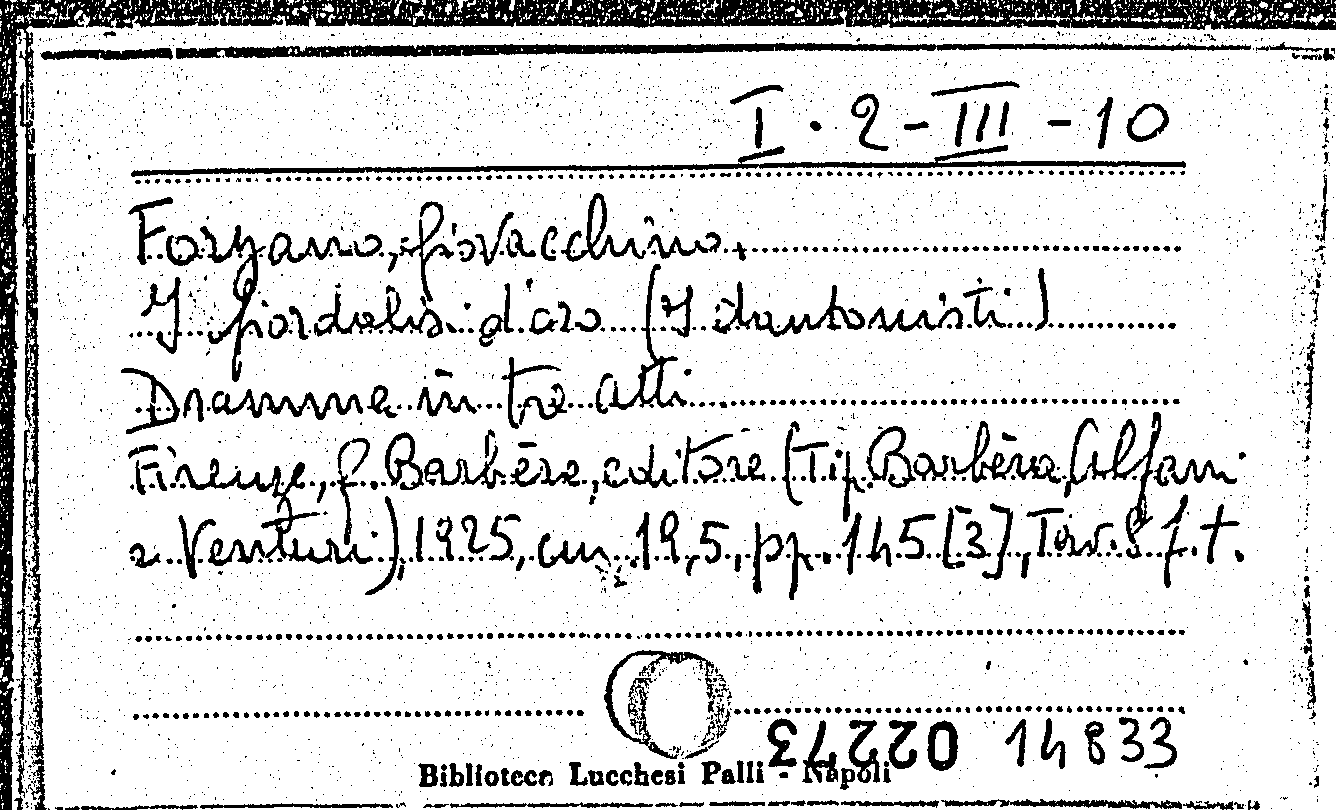 I. 2 - III - 10
Forzano, Giovacchino.
I fiordalisi d'oro (I dantonisti)
Dramma in tre atti
Firenze, G. Barbèra, editore (Tip. Barbèra, Alfani
e Venturi), 1925, cm. 19,5, pp. 145 [3], Tav. 8 f. t.
022473 14833
Biblioteca Lucchesi Palli - Napoli